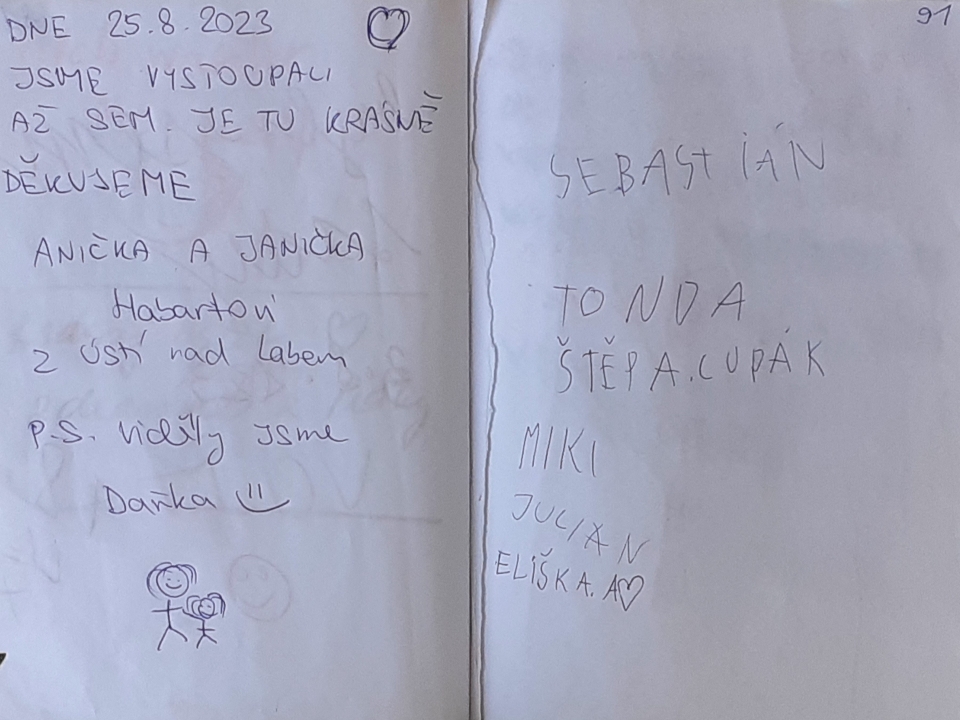 DNE 25.8.2023
JSME VYSTOUPALI
AŽ SEM. JE TU KRÁSNĚ
DĚKUJEME
ANIČKA A JANIČKA
Habartovi
z Ústí nad Labem
P.S. Viděly jsme
Daňka
91
SEBASTIÁN
TONDA
ŠTĚPA.CUPÁK
MIKI
JULIAN
ELIŠKA. A